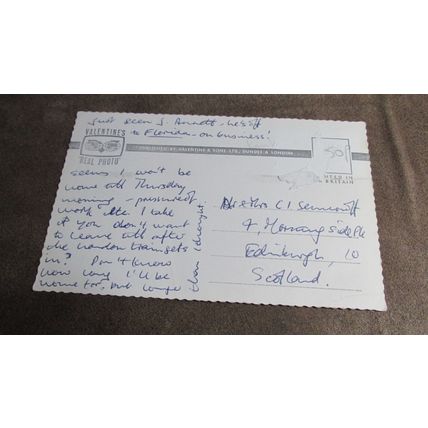 Just seen J. Arnott – he's off
to Florida – on business!
VALENTINE'S
REAL PHOTO
PUBLISHED BY VALENTINE & SONS LTD., DUNDEE & LONDON
50
PRINTED IN
BRITAIN
seems I won't be
home till Thursday
morning –
work etc. I take
it you don't want
to leave till after
the London train gets
in? Don't know
how long I'll be
home for, but longer
than I thought.
Mr & Mrs C I
7, Morningside Pk
Edinburgh, 10
Scotland.